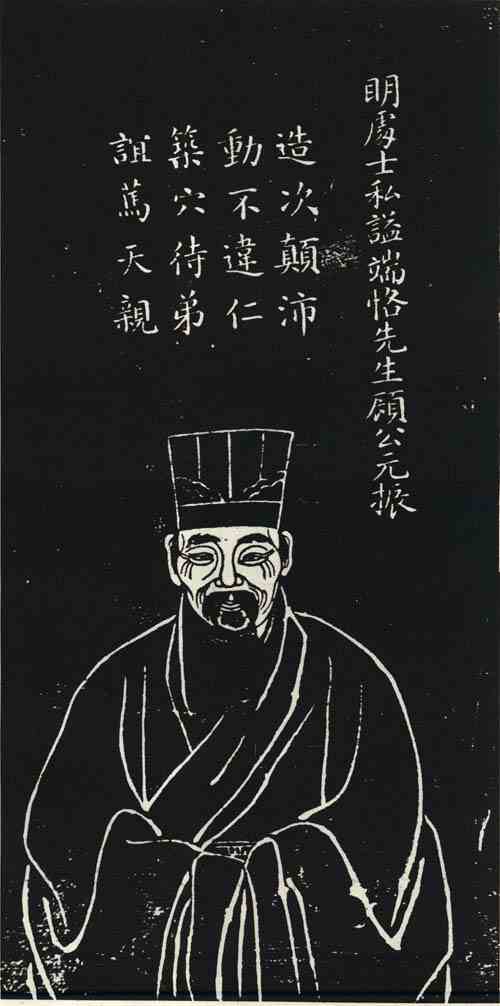 明處士私謚端恪先生顧公元振
造次顛沛
動不違仁
築穴待弟
詛蔫天親